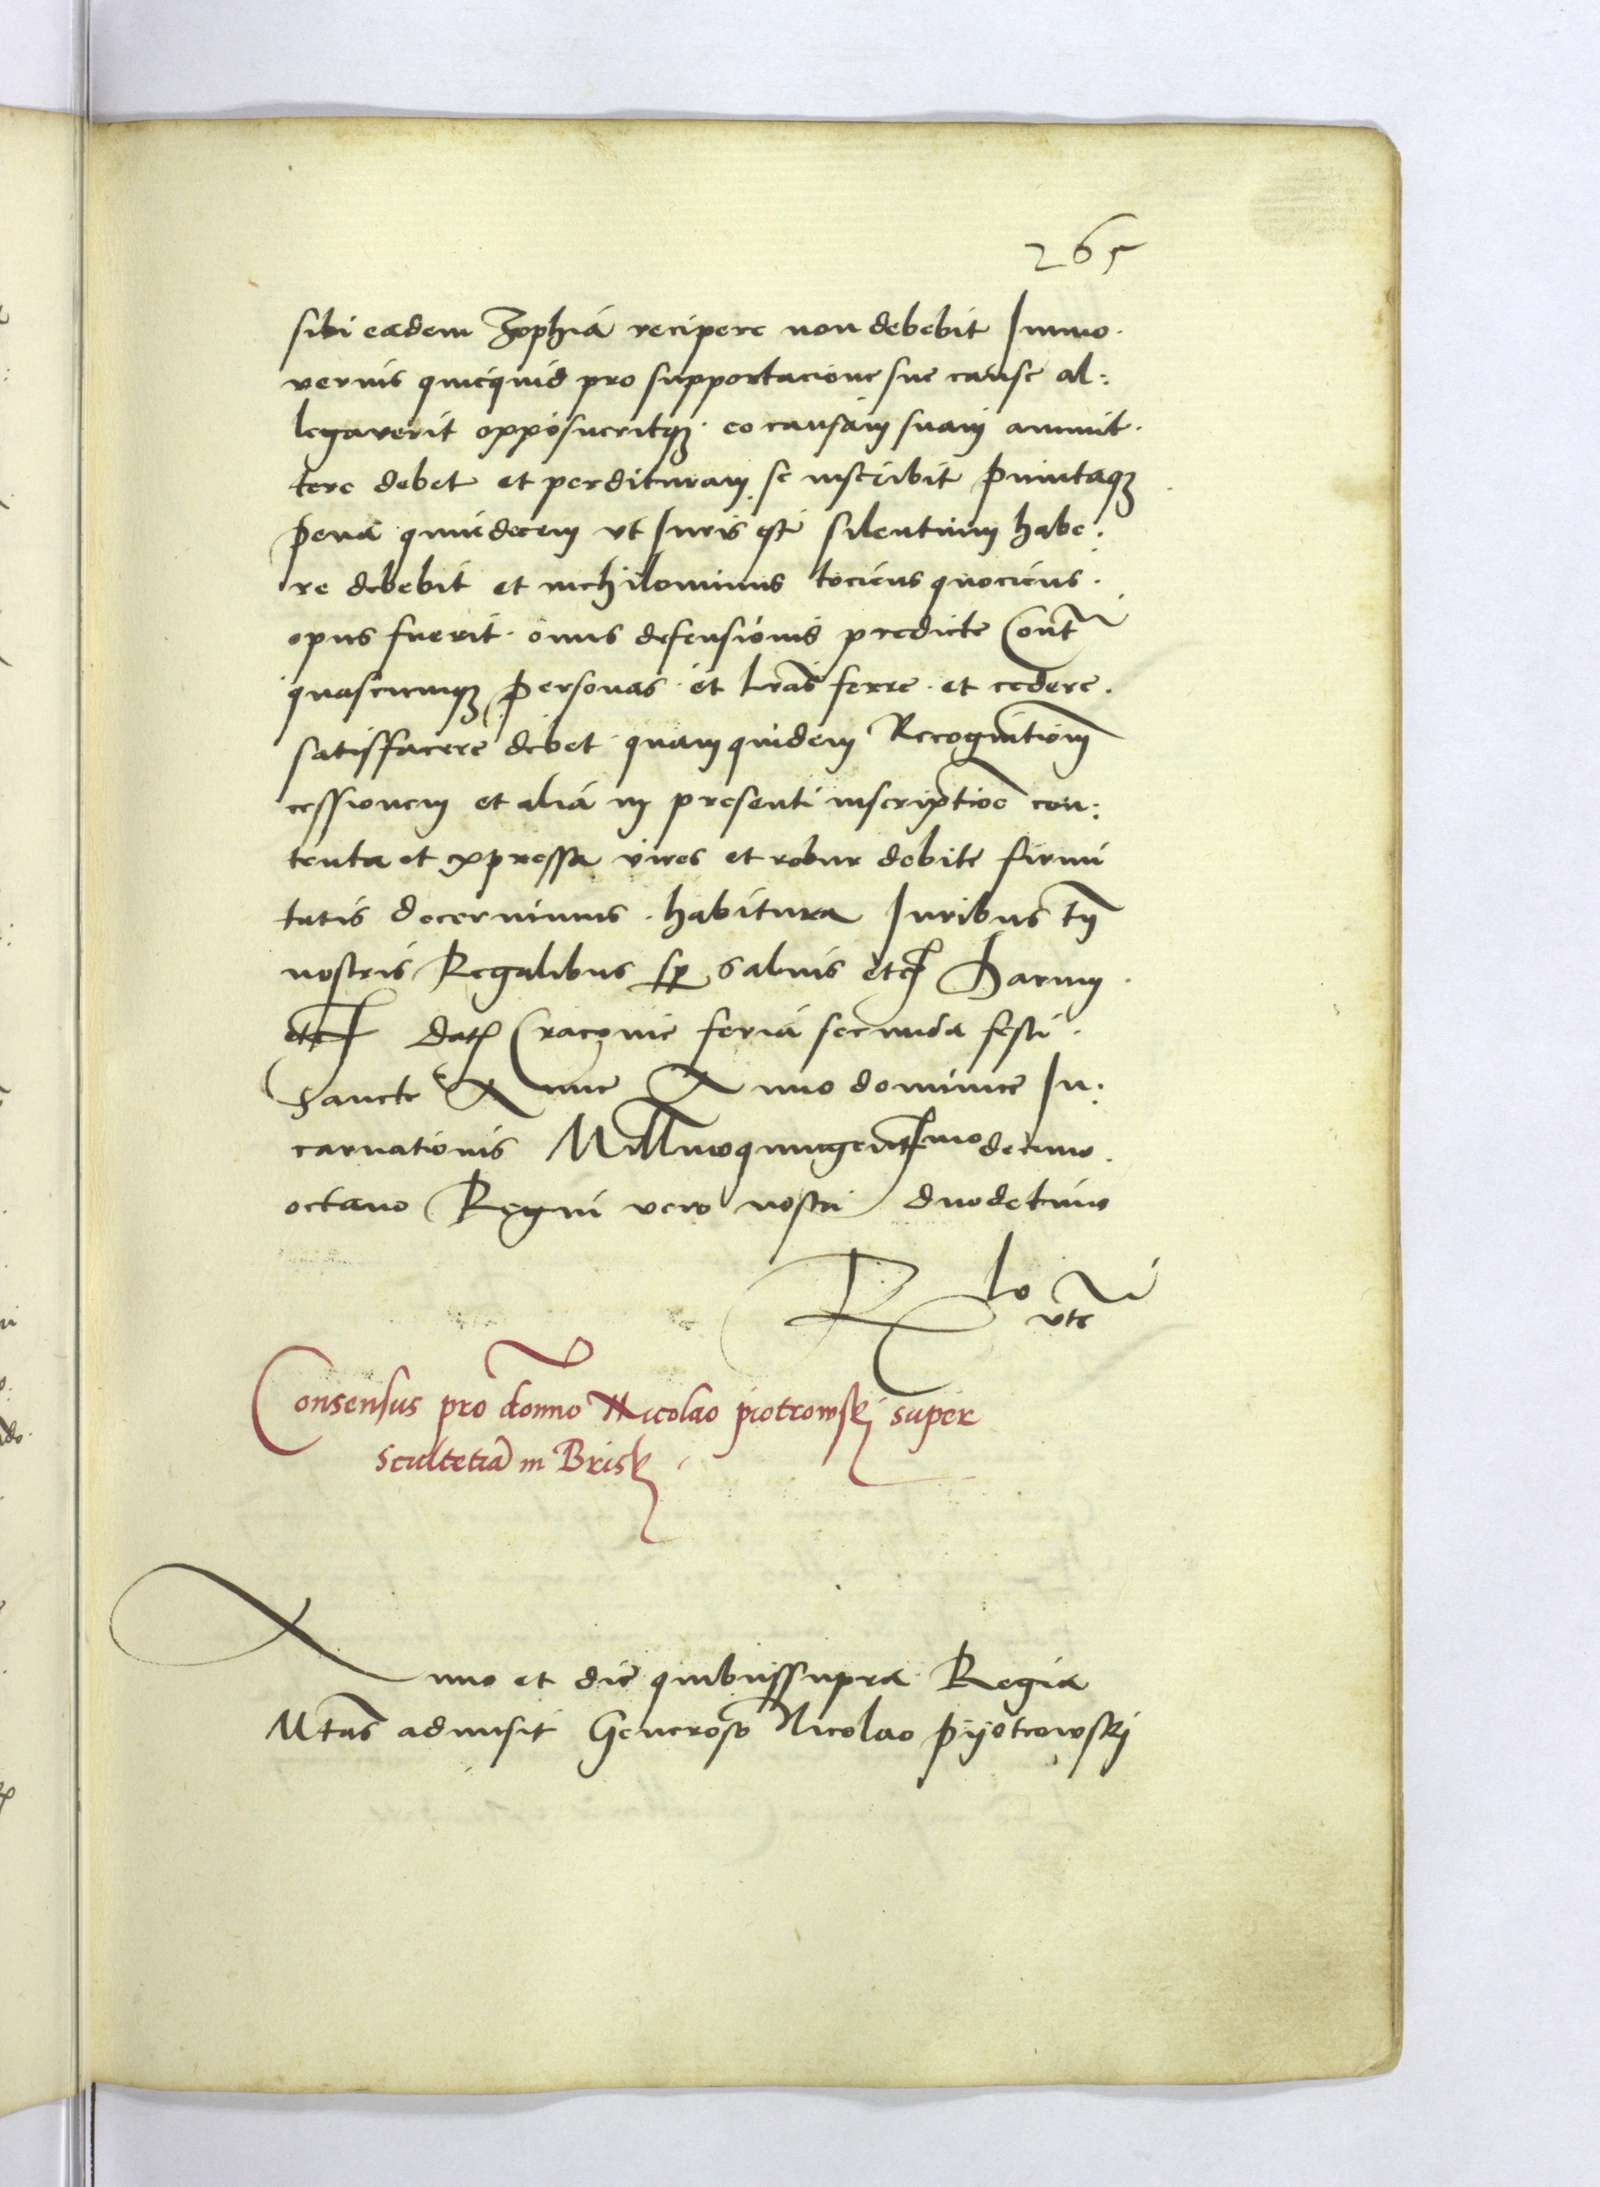 265
sibi eadem Zophia recipere non debebit Immo
verius quicquid pro supportacione sue cause al:
legaverit opposueritq3 eo causam suam ammit
tere debet et perdituram se inscribit
pena quindecem ut Iuris est silentium habe:
re debebit et nichilominus tociens quociens
opus fuerit onus defensionis predicte Contra
quascumq3 personas et l̄ras ferre et cedere
satisffacere debet quamquidem Recognitionem
cessionem et alia in presenti inscriptioe con:
tenta et expressa vires et robur debite firmi
tatis decernimus habitura Iuribus tn̄
nostris Regalibus sp̄ salvis etc Harum
etc Dat Cracovie feria secunda festi
Sancte Anne Anno dominice In:
carnationis Mill̄moquingentmo decimo
octavo Regni vero nostri duodecimo
R
Consensus pro domno Nicolao piotrowskj super
Scultetia in Brisk
Anno et die quibussupra Regia
Mtas admisit Generoso Nicolao pyotrowskj